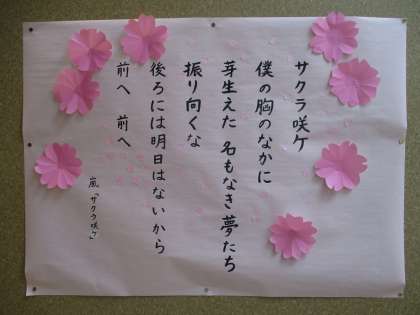 サクラ咲ケ
僕の胸のなかに
芽生えた 名もなき夢たち
振り向くな
後ろには明日はないから
前へ 前へ
嵐「サクラ咲ケ」